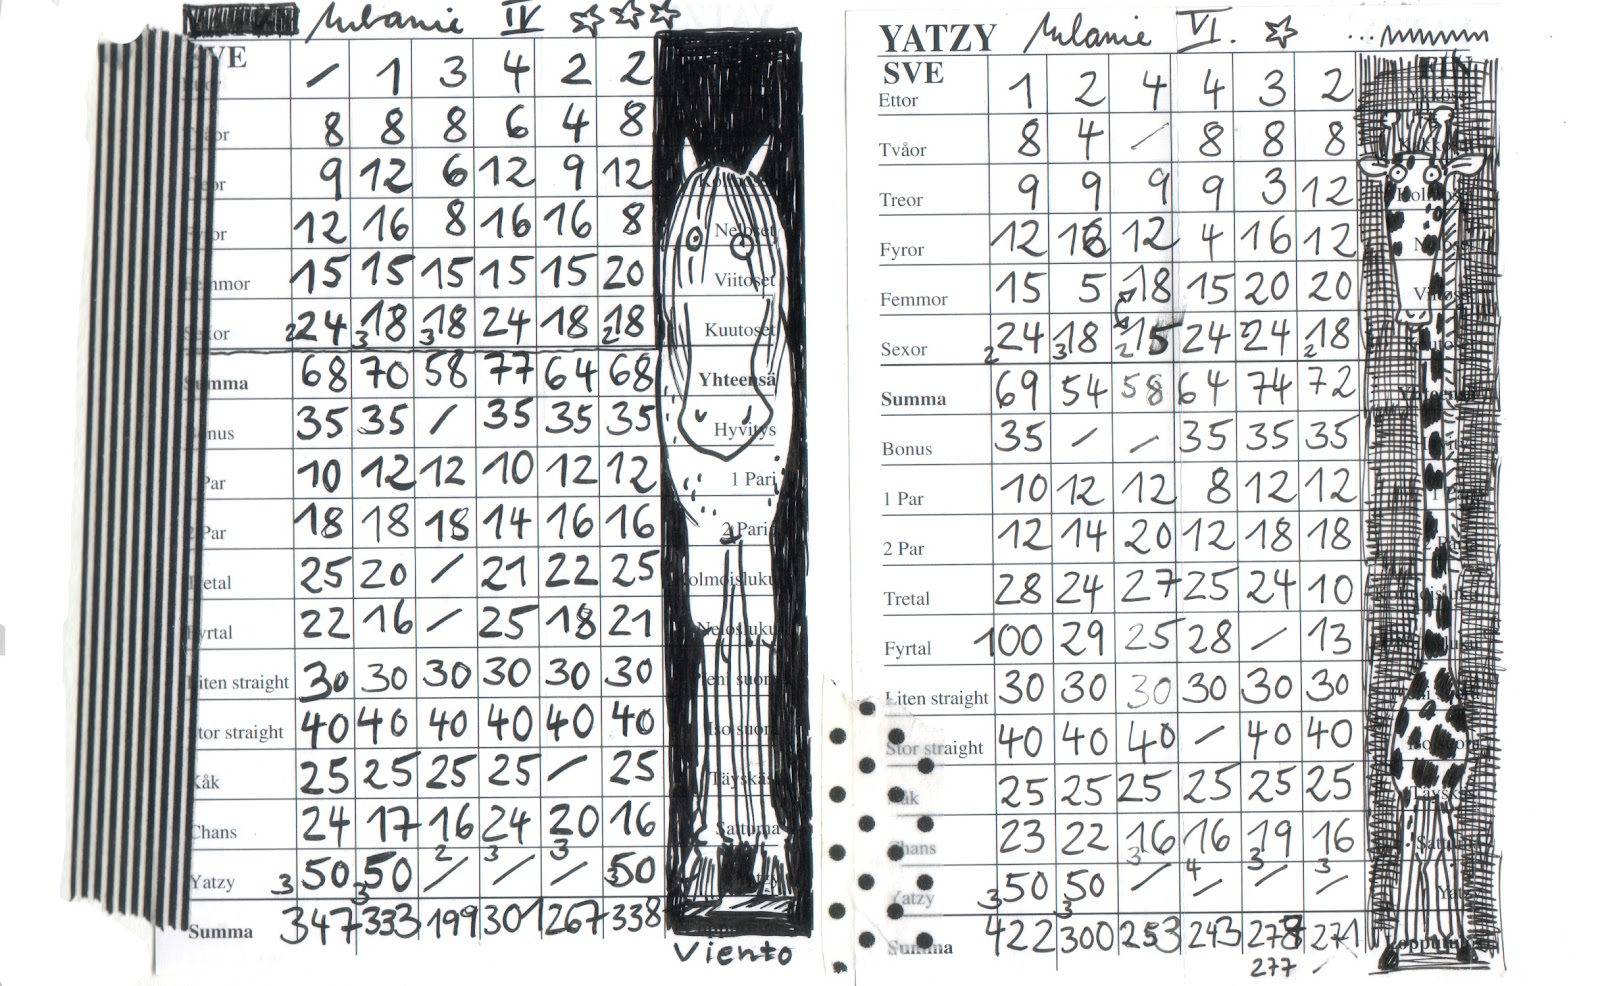 Melanie IV
SVE / 1 3 4 2 2
8 8 8 6 4 8
9 12 6 12 9 12
12 16 8 16 16 8 Neloset
Femmor 15 15 15 15 15 20 Viitoset
Sexor 2 24 3 18 3 18 24 18 2 18 Kuutoset
Summa 68 70 58 77 64 68 Yhteensä
Bonus 35 35 / 35 35 35 Hyvitys
Par 10 12 12 10 12 12 1 Pari
2 Par 18 18 18 14 16 16 2 Paria
Tretal 25 20 / 21 22 25 Kolmoisluku
Fyrtal 22 16 / 25 18 21 Neloisluku
Liten straight 30 30 30 30 30 30
Stor straight 40 40 40 40 40 40 Iso suora
Kåk 25 25 25 25 / 25
Chans 24 17 16 24 20 16 Sattuma
Yatzy 3 50 3 50 2 / 3 / 3 / 3 50
Summa 347 333 199 301 267 338
Viento
YATZY Melanie VI. ...
SVE FIN
Ettor 1 2 4 4 3 2
Tvåor 8 4 / 8 8 8
Treor 9 9 9 9 3 12
Fyror 12 16 12 4 16 12
Femmor 15 5 18 15 20 20
Sexor 2 24 3 18 2 15 24 2 24 2 18
Summa 69 54 58 64 74 72
Bonus 35 / / 35 35 35
1 Par 10 12 12 8 12 12
2 Par 12 14 20 12 18 18
Tretal 28 24 27 25 24 10
Fyrtal 100 29 25 28 / 13
Liten straight 30 30 30 30 30 30
Stor straight 40 40 40 / 40 40
Kåk 25 25 25 25 25 25
Chans 23 22 16 16 19 16
Yatzy 3 50 3 50 3 / 4 / 3 / 3 / Yatzy
Summa 422 300 253 243 278 271
277 /